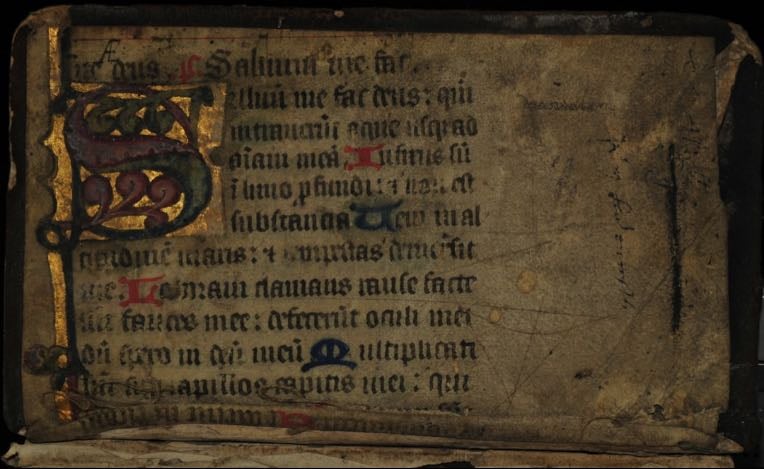 me deus. ps Saluum me fac
Saluū me fac deus: qm̄
intrauerūt aque usq̄ ad
aīam meā. Infixus sū
ī limo ꝓfundi: ⁊ non est
substantia Veni in al
titudinē maris: ⁊ tempestas demersit
me. Laboraui clamans rauce facte
sūt fauces mee: defecerūt oculi mei
dū spero in deū meū Multiplicati
sūt sup̄ capillos capitis mei: qui